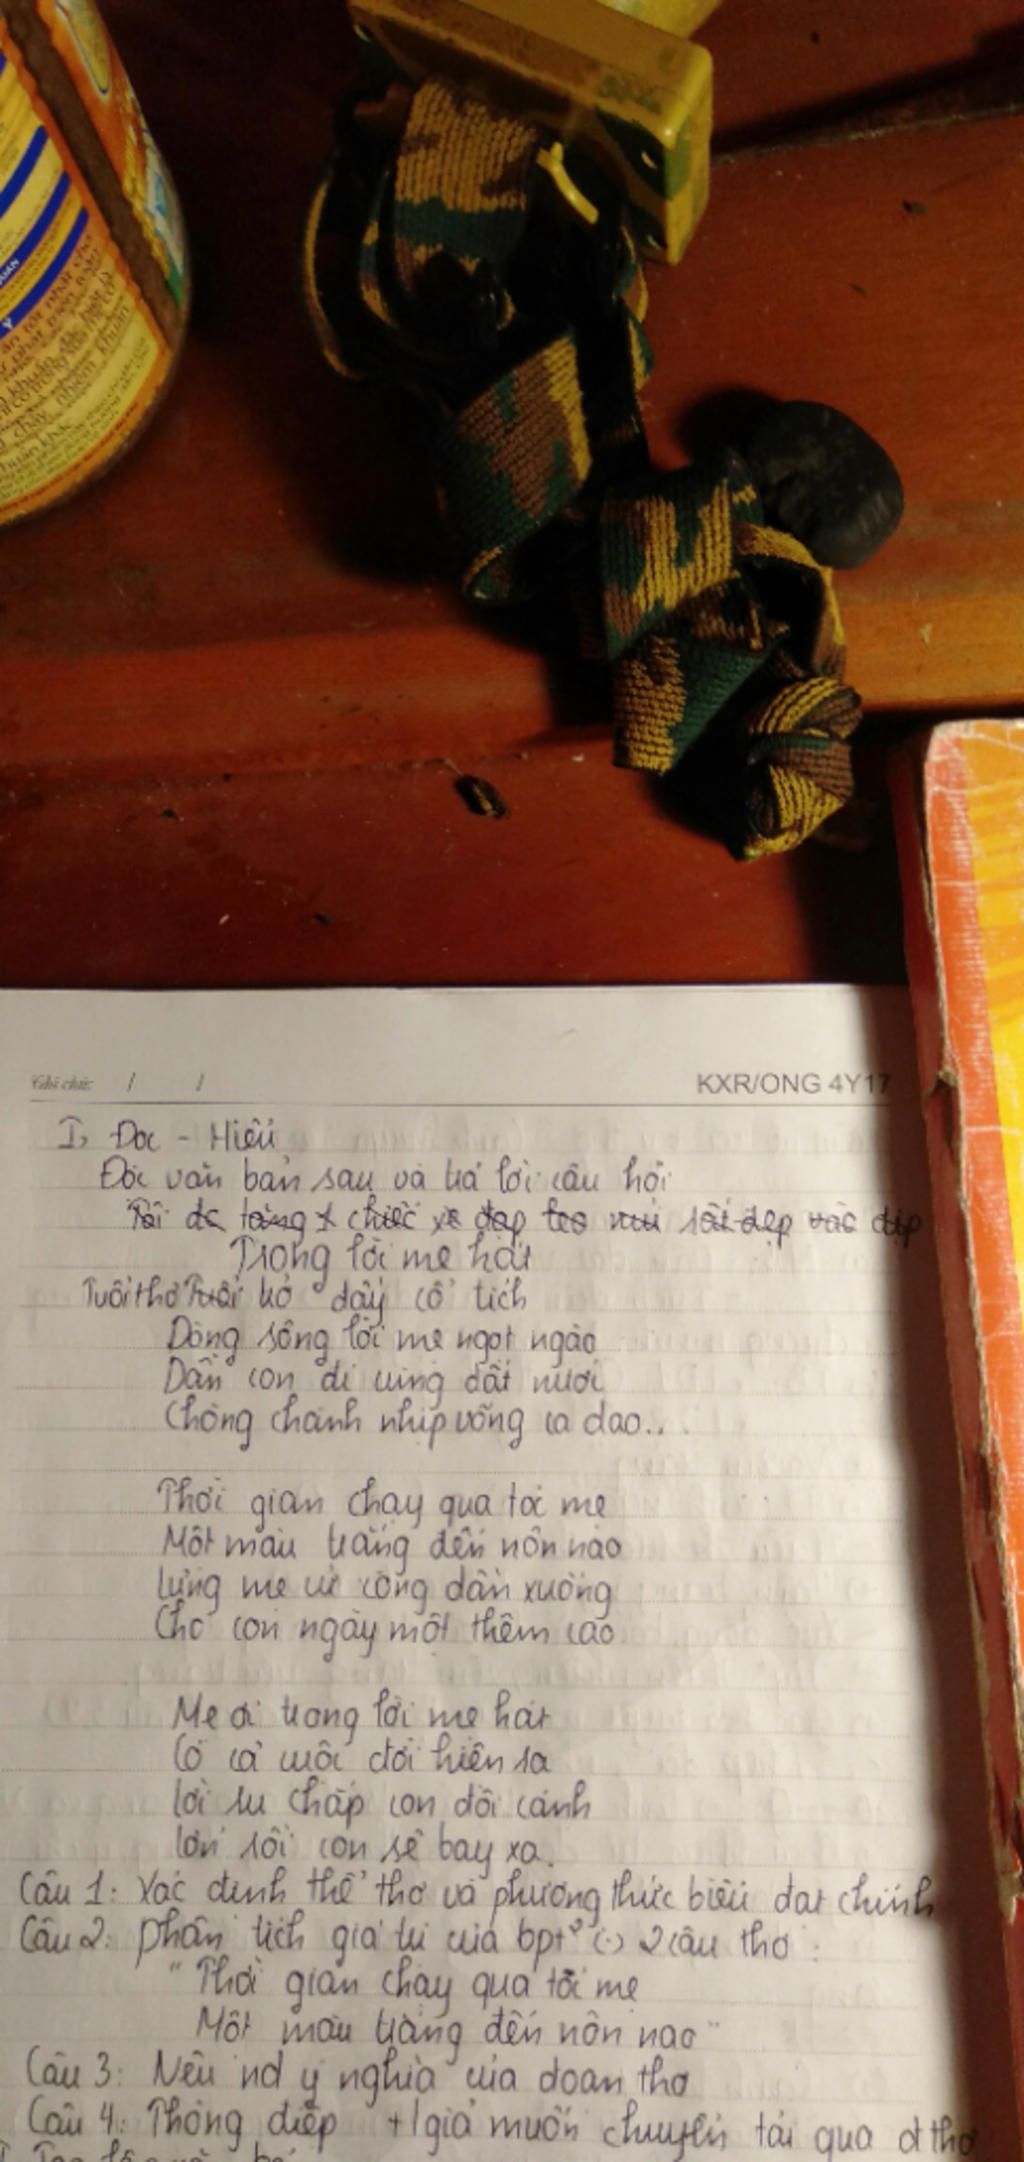 Ghi chú: / /
KXR/ONG 4Y17
I, Đọc - Hiểu
Đọc văn bản sau và trả lời câu hỏi
Trong lời mẹ hát
Tuổi thơ trở đầy cổ tích
Dòng sông lời mẹ ngọt ngào
Dẫn con đi cùng đất nước
Chòng chành nhịp võng ca dao..
Thời gian chạy qua tóc mẹ
Một màu trắng đến nôn nao
Lưng mẹ cứ còng dần xuống
Cho con ngày một thêm cao
Mẹ ơi trong lời mẹ hát
Có cả cuộc đời hiện ra
Lời ru chắp con đôi cánh
Lớn rồi con sẽ bay xa.
Câu 1: Xác định thể thơ và phương thức biểu đạt chính
Câu 2: Phân tích giá trị của bpt² (-) 2 câu thơ:
"Thời gian chạy qua tóc mẹ
Một màu trắng đến nôn nao"
Câu 3: Nêu nd ý nghĩa của đoạn thơ
Câu 4: Thông điệp t/giả muốn chuyển tải qua đ thơ